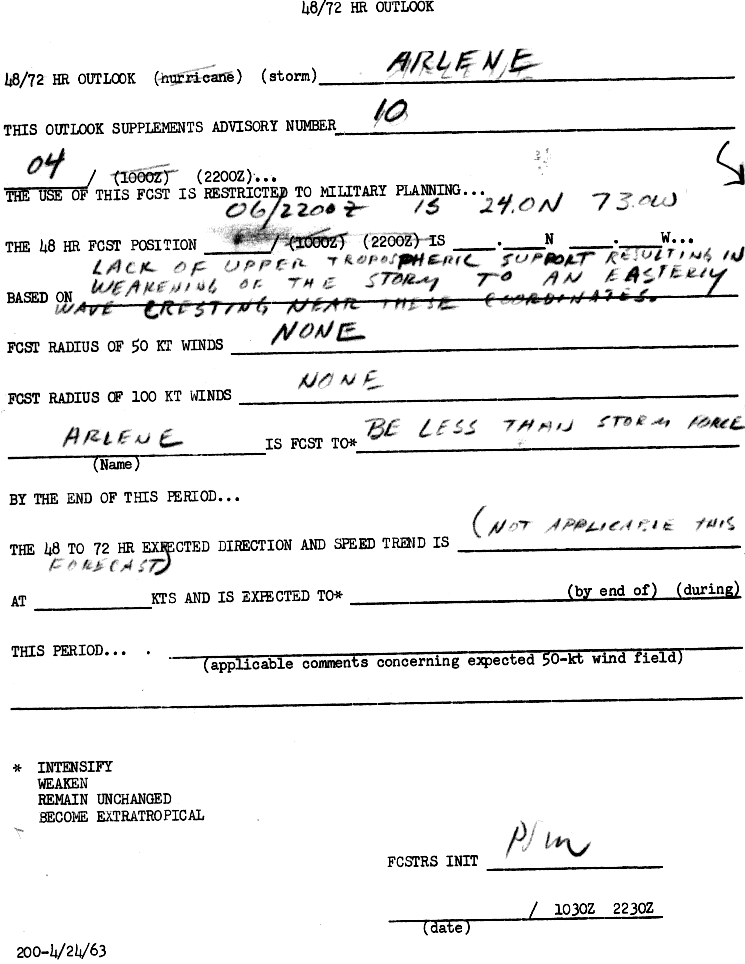 48/72 HR OUTLOOK
48/72 HR OUTLOOK (hurricane) (storm) ARLENE
THIS OUTLOOK SUPPLEMENTS ADVISORY NUMBER 10
04 / (1000Z) (2200Z)...
THE USE OF THIS FCST IS RESTRICTED TO MILITARY PLANNING...
06/2200Z IS 24.0N 73.0W
THE 48 HR FCST POSITION / (1000Z) (2200Z) IS . N . W...
LACK OF UPPER TROPOSPHERIC SUPPORT RESULTING IN
BASED ON WEAKENING OF THE STORM TO AN EASTERLY
WAVE CRESTING NEAR THESE COORDINATES.
FCST RADIUS OF 50 KT WINDS NONE
FCST RADIUS OF 100 KT WINDS NONE
ARLENE IS FCST TO* BE LESS THAN STORM FORCE
(Name)
BY THE END OF THIS PERIOD...
THE 48 TO 72 HR EXPECTED DIRECTION AND SPEED TREND IS (NOT APPLICABLE THIS
FORECAST)
AT KTS AND IS EXPECTED TO* (by end of) (during)
THIS PERIOD... .
(applicable comments concerning expected 50-kt wind field)
* INTENSIFY
WEAKEN
REMAIN UNCHANGED
BECOME EXTRATROPICAL
FCSTRS INIT
/ 1030Z 2230Z
(date)
200-4/24/63